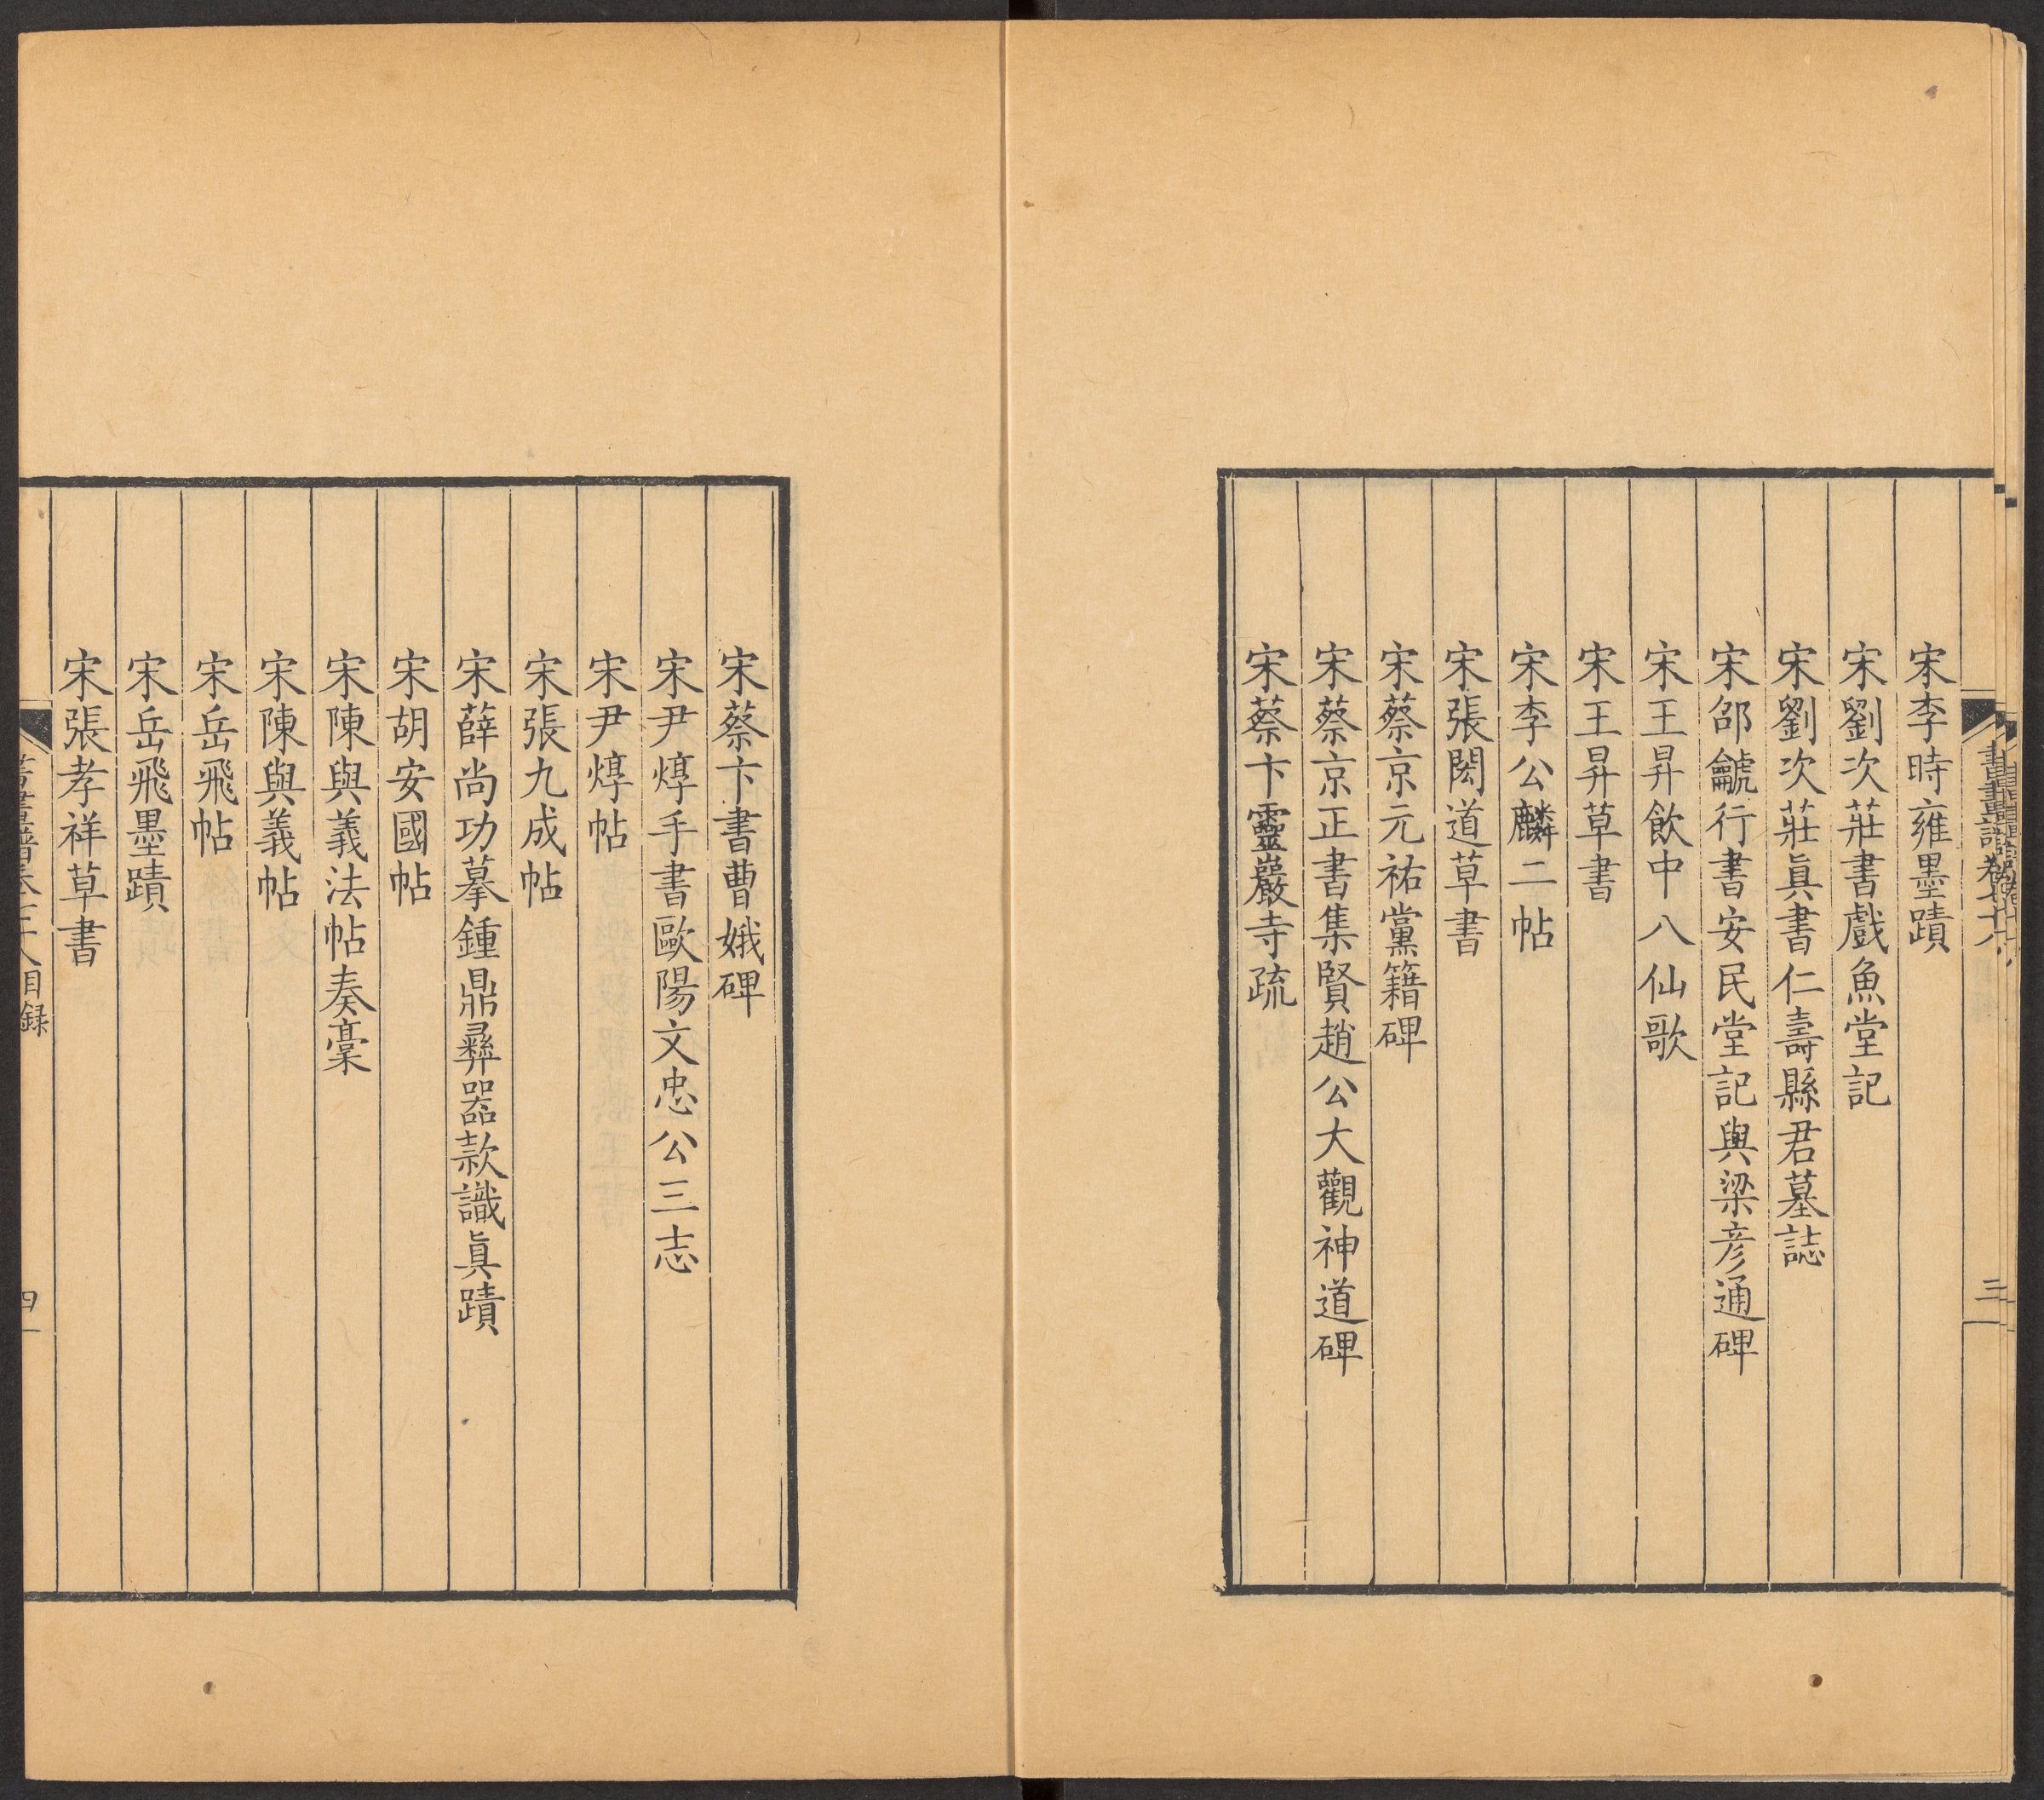 宋李時雍墨蹟
宋劉次莊書戲魚堂記
宋劉次莊眞書仁壽縣君墓誌
宋邵龢行書安民堂記與梁彦通碑
宋王昇飲中八仙歌
宋王昇草書
宋李公麟二帖
宋張閎道草書
宋蔡京元祐黨籍碑
宋蔡京正書集賢趙公大觀神道碑
宋蔡卞靈巖寺疏
三
宋蔡卞書曹娥碑
宋尹焞手書歐陽文忠公三志
宋尹焞帖
宋張九成帖
宋薛尚功摹鍾鼎彛器款識眞蹟
宋胡安國帖
宋陳與義法帖奏稾
宋陳與義帖
宋岳飛帖
宋岳飛墨蹟
宋張孝祥草書
目録
四